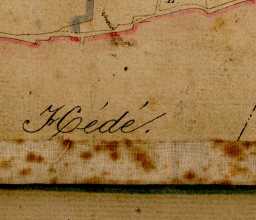 Hédé.